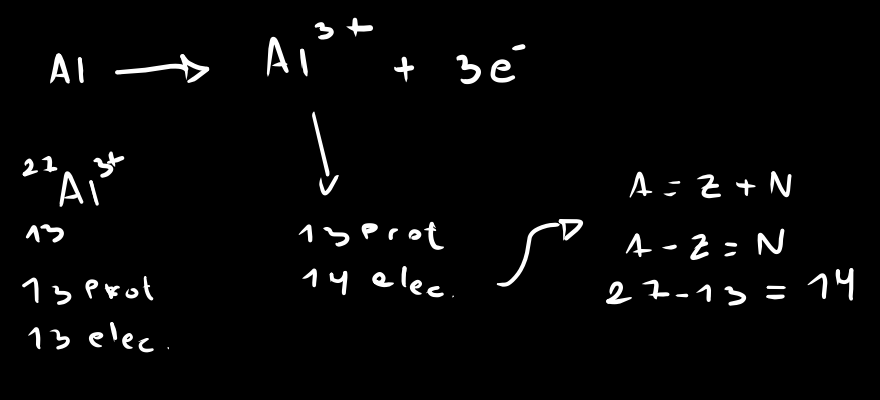 Al → Al³⁺ + 3e⁻
²⁷Al³⁺
13
13 prot
13 elec.
13 Prot
14 elec.
A = Z + N
A - Z = N
27 - 13 = 14